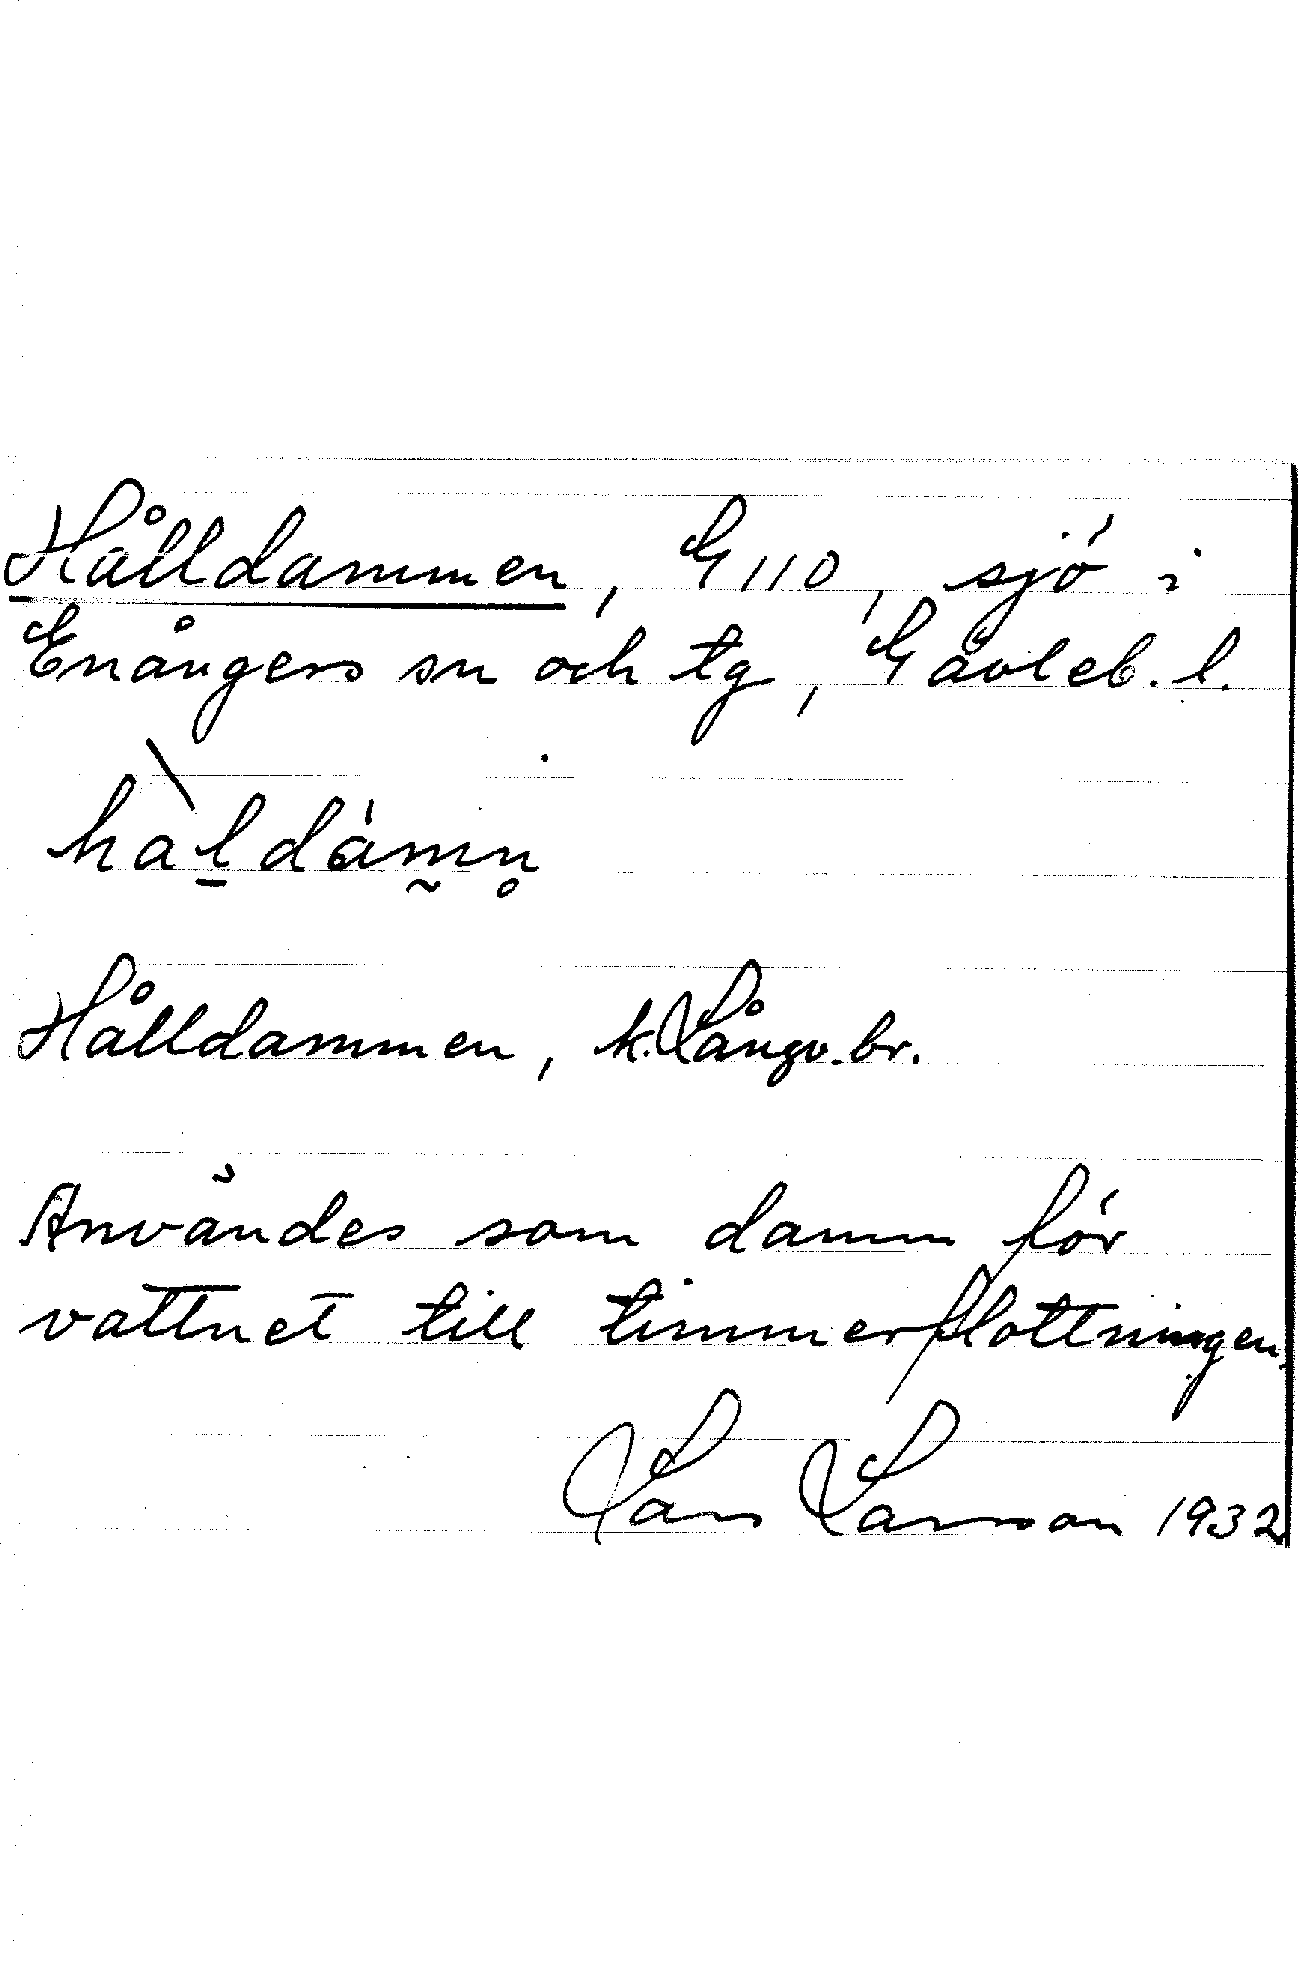 Hålldammen, G 110, sjö i
Enångers sn och tg, Gävleb. l.
hàl̠dám̰n̥
Hålldammen, k. Långv. br.
Användes som damm för
vattnet till timmerflottningen.
Lars Larsson 1932